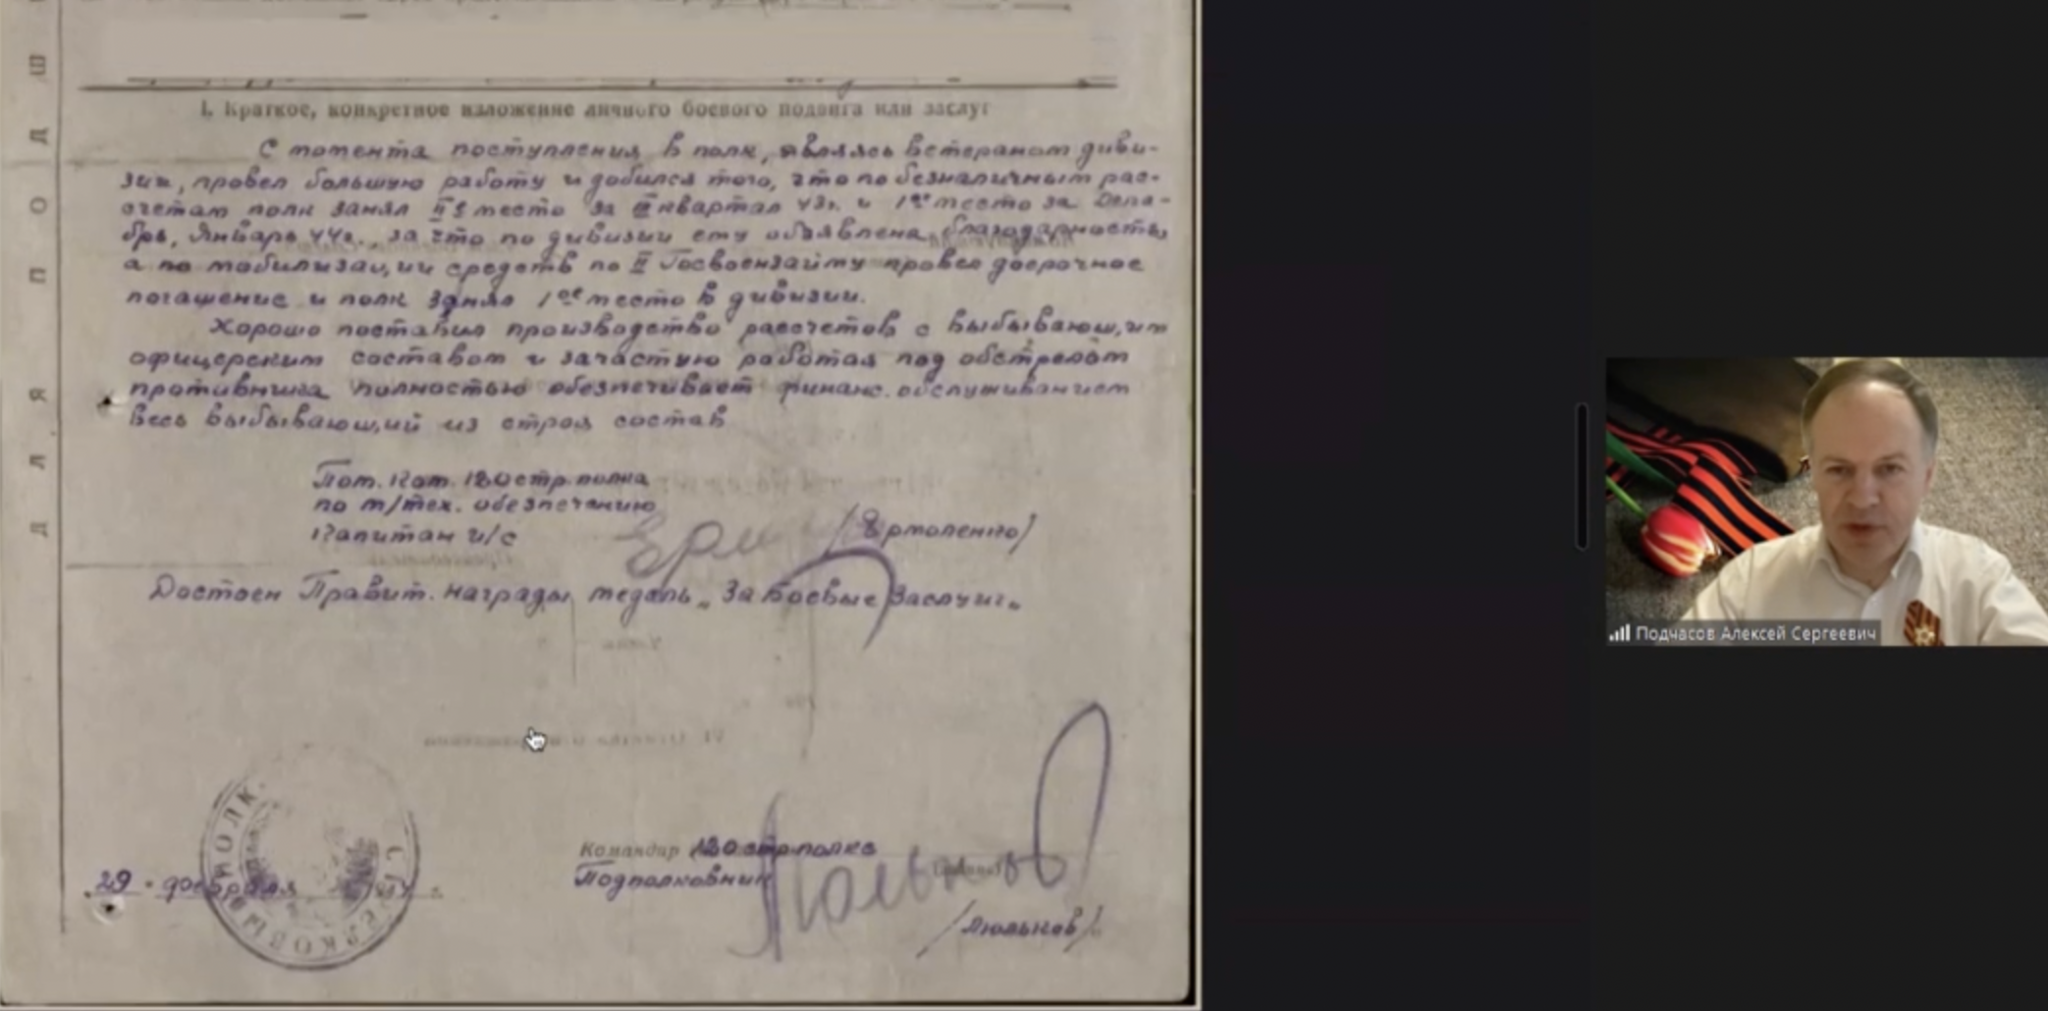 I. Краткое, конкретное изложение личного боевого подвига или заслуг
С момента поступления в полк, являясь ветераном диви-
зии, провел большую работу и добился того, что по безналичным рас-
счетам полк занял место за квартал 43г. и 1ое место за Дека-
брь, Январь 44г., за что по дивизии ему объявлена благодарность,
а по мобилизации средств по II Госвоензайму провел досрочное
погашение и полк занял 1ое место в дивизии.
Хорошо поставил производство рассчетов с выбывающим
офицерским составом и зачастую работая под обстрелом
противника полностью обеспечивает финанс. обслуживанием
весь выбывающий из строя состав
Пом. Ком. 120 стр. полка
по м/тех. обеспечению
Капитан и/с /Ермоленко/
Достоен Правит. награды медаль „За Боевые Заслуги„
Командир 120 стр. полка
Подполковник
29 февраля
/Люльков/
ДЛЯ ПОДШ
СТРЕЛКОВЫЙ ПОЛК
Подчасов Алексей Сергеевич